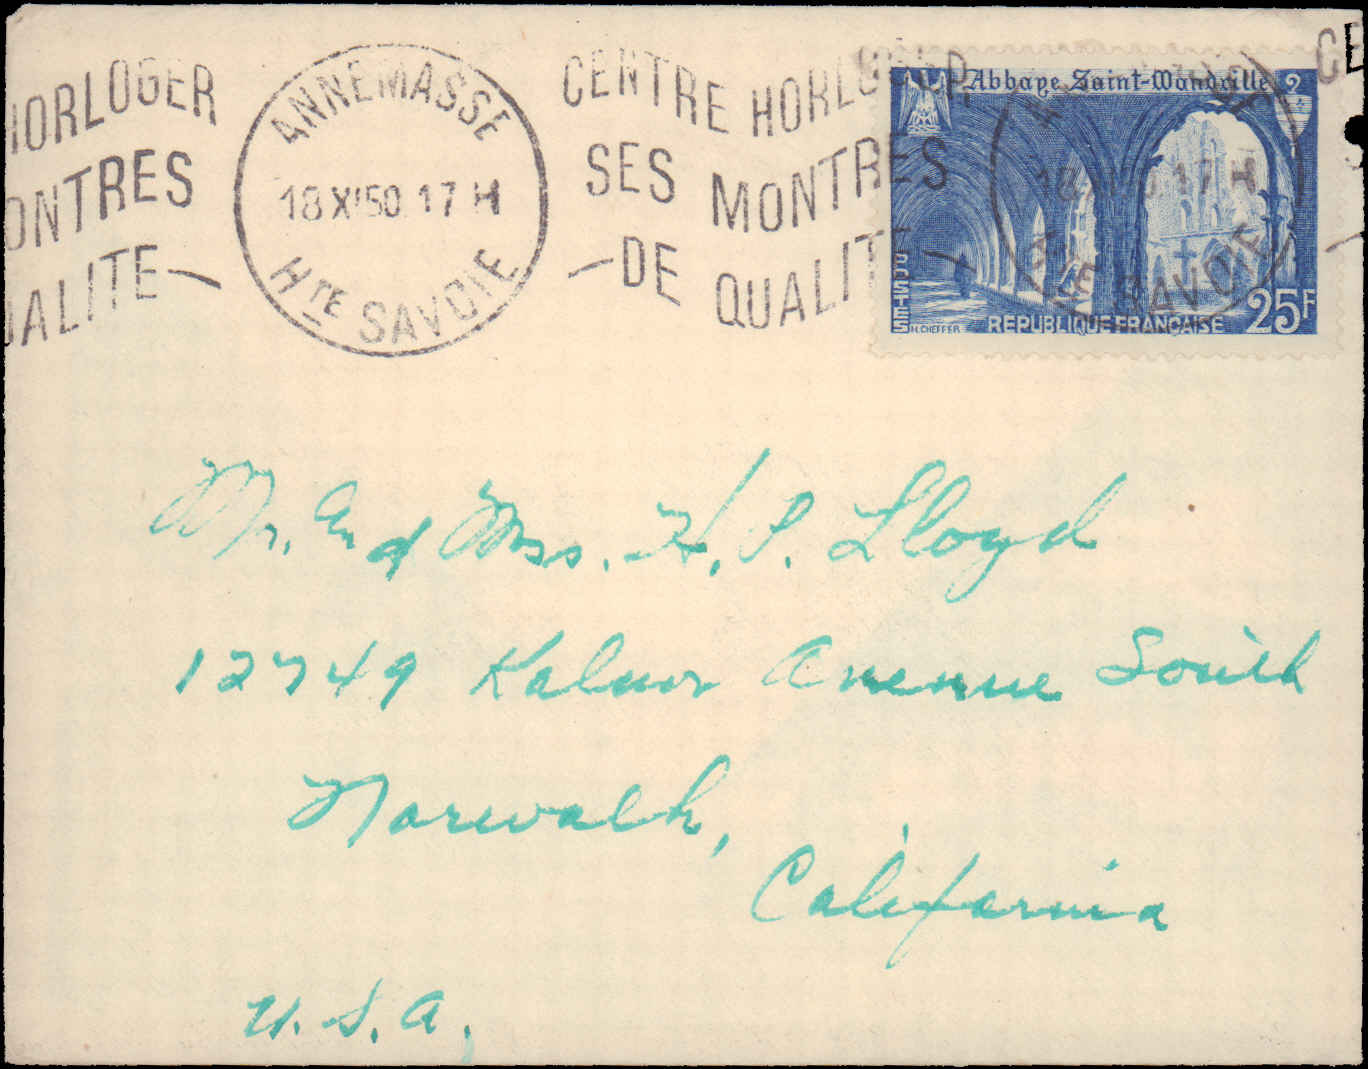 HORLOGER
ONTRES
UALITE
ANNEMASSE
18 XI 50 17 H
HTE SAVOIE
CENTRE HORLOGER
SES MONTRES
DE QUALIT
Abbaye Saint-Wandrille
POSTES
H. CHEFFER
REPUBLIQUE FRANÇAISE
25F
CE
Mr. And Mrs. H. P. Lloyd
12749 Kalnor Avenue South
Norwalk,
California
U.S.A.